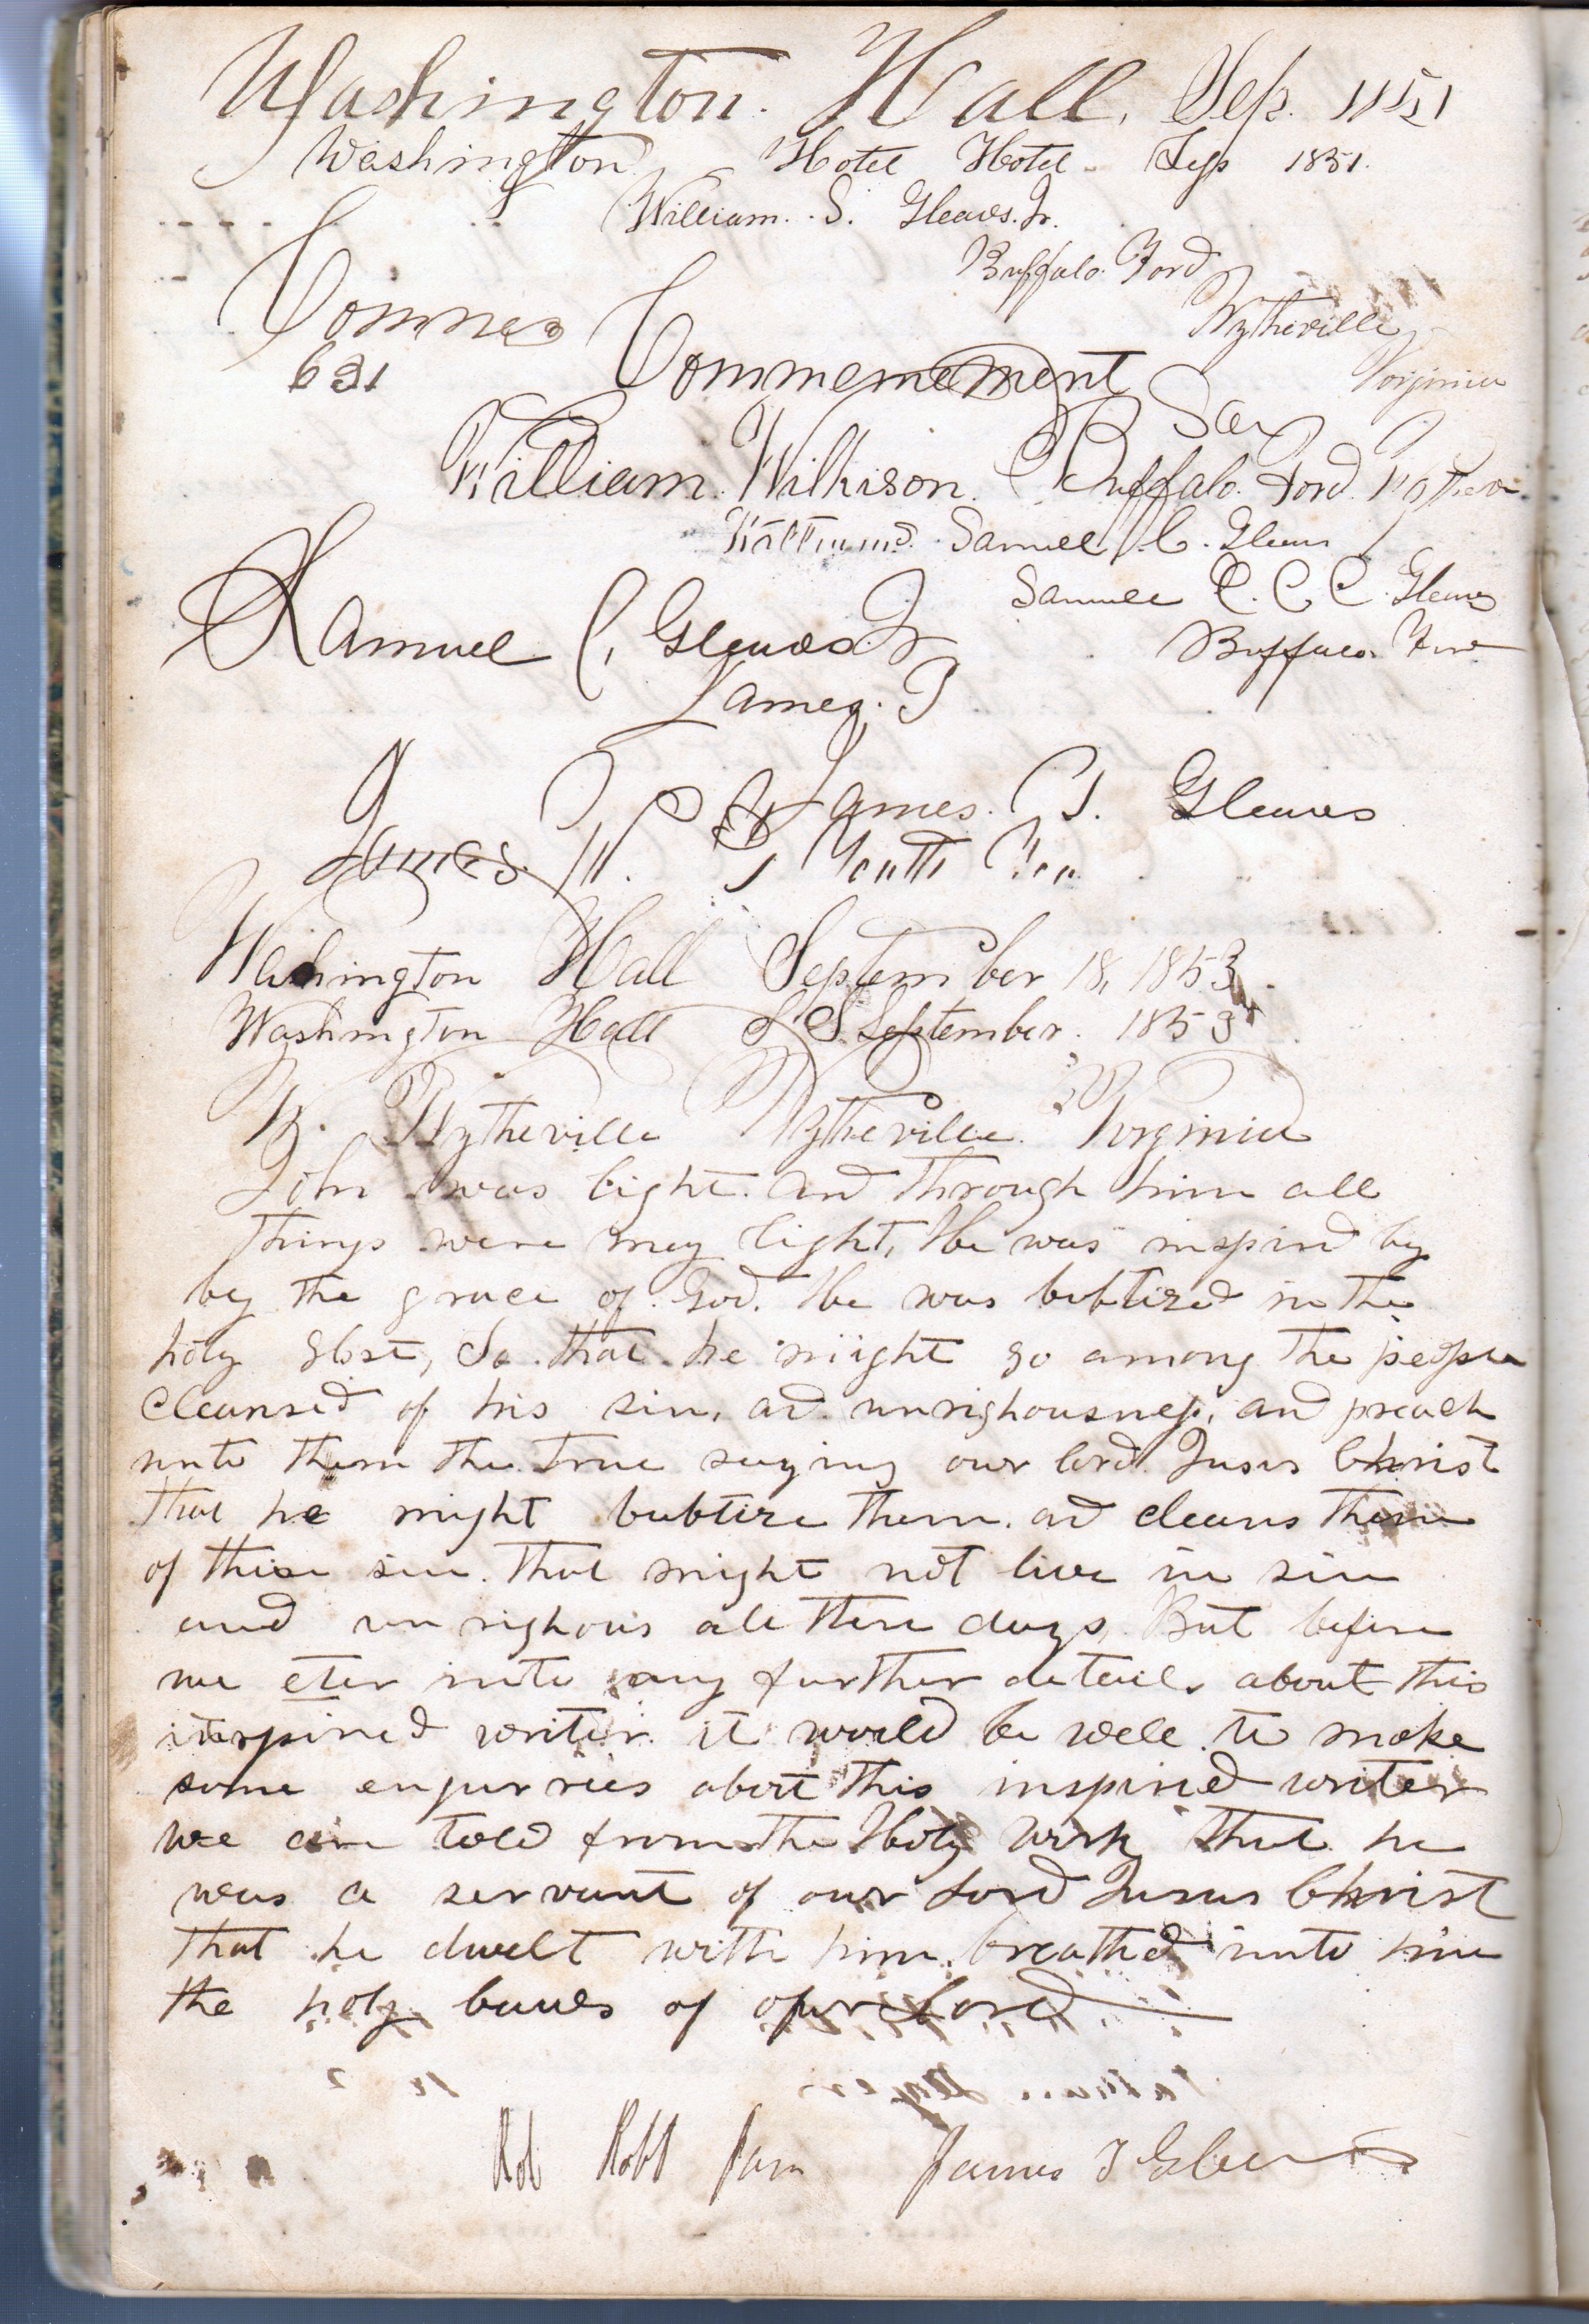 Washington. Hall. Sep. 1851
Washington Hotel Hotel Sep 1851.
William. S. Gleaves. Jr.
Buffalo. Ford
Wytheville
Virginia
631
Commencement
William. Wilkison. Buffalo. Ford.
Samuel C. Gleaves
Samuel C. C. C. Gleaves
Samuel C. Gleaves. Jr
Buffalo. Ford
James. T
James. T. Gleaves
James. W.
Washington Hall September 18, 1853
Washington Hall S S September. 1853
W. Wytheville Wytheville. Virginia
John was light. and through him all
things were may light, He was inspird by
by the grace of God. He was babtized in the
holy Gost, So that he might go among the people
cleansed of his sin, ad unrighousness, and preach
unto them the true saying our lord Jesus Christ
that he might babtize them. ad cleans them
of thier sin. that might not live in sin
and un righous all there days, But before
we eter into any further details about this
inspired writer. it would be well to make
some enqurries abot this inspired writer
we are told from the Holy Work that he
was a servant of our Lord Jesus Christ
that he dwelt with him, breathed into him
the holy of our Lord
Rob Robt Jam James T Gleaves